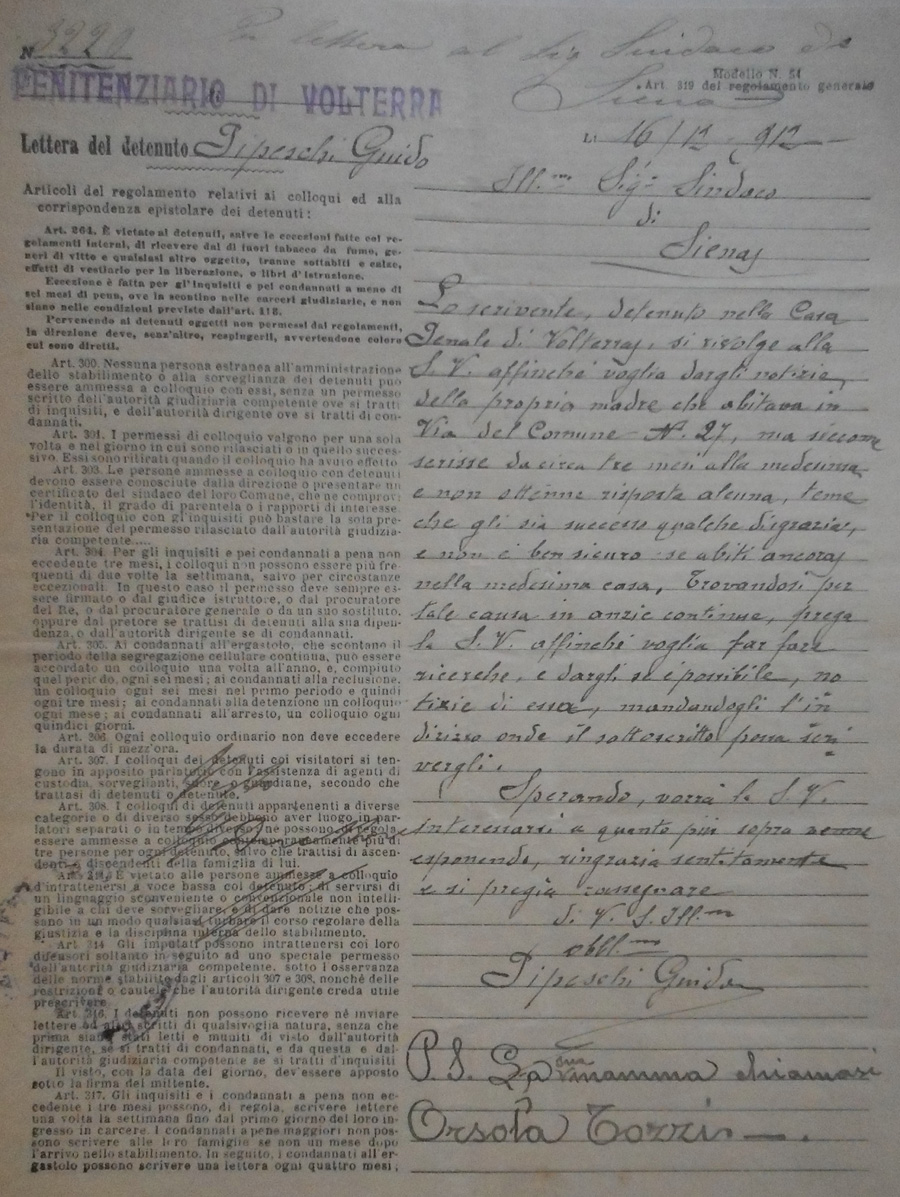 N. 3220
Per lettera al Sig Sindaco di
Siena
PENITENZIARIO DI VOLTERRA
Modello N. 54
Art. 319 del regolamento generale
Lettera del detenuto Pipeschi Guido
Articoli del regolamento relativi ai colloqui ed alla
corrispondenza epistolare dei detenuti:
Art. 264. È vietato ai detenuti, salve le eccezioni fatte coi re-
golamenti interni, di ricevere dal di fuori tabacco da fumo, ge-
neri di vitto e qualsiasi altro oggetto, tranne sottabiti e calze,
effetti di vestiario per la liberazione, o libri d'istruzione.
Eccezione è fatta per gl'inquisiti e pei condannati a meno di
sei mesi di pena, ove in scontino nelle carceri giudiziarie, e non
siano nelle condizioni previste dall'art. 218.
Pervenendo ai detenuti oggetti non permessi dai regolamenti,
la direzione deve, senz'altro, respingerli, avvertendone coloro
cui sono diretti.
Art. 300. Nessuna persona estranea all'amministrazione
dello stabilimento o alla sorveglianza dei detenuti può
essere ammessa a colloquio con essi, senza un permesso
scritto dell'autorità giudiziaria competente ove si tratti
di inquisiti, e dell'autorità dirigente ove si tratti di con-
dannati.
Art. 301. I permessi di colloquio valgono per una sola
volta e nel giorno in cui sono rilasciati o in quello succes-
sivo. Essi sono ritirati quando il colloquio ha avuto effetto
Art. 303. Le persone ammesse a colloquio con detenuti
devono essere conosciute dalla direzione o presentare un
certificato del sindaco del loro Comune, che ne comprovi
l'identità, il grado di parentela o i rapporti di interesse.
Per il colloquio con gl'inquisiti può bastare la sola pre-
sentazione del permesso rilasciato dall'autorità giudizia-
ria competente.....
Art. 304. Per gli inquisiti e pei condannati a pena non
eccedente tre mesi, i colloqui non possono essere più fre-
quenti di due volte la settimana, salvo per circostanze
eccezionali. In questo caso il permesso deve sempre es-
sere firmato o dal giudice istruttore, o dal procuratore
del Re, o dal procuratore generale o da un suo sostituto,
oppure dal pretore se trattisi di detenuti alla sua dipen-
denza, o dall'autorità dirigente se di condannati.
Art. 305. Ai condannati all'ergastolo, che scontano il
periodo della segregazione cellulare continua, può essere
accordato un colloquio una volta all'anno, e, compiuto
quel periodo, ogni sei mesi; ai condannati alla reclusione,
un colloquio ogni sei mesi nel primo periodo e quindi
ogni tre mesi; ai condannati alla detenzione un colloquio
ogni mese; ai condannati all'arresto, un colloquio ogni
quindici giorni.
Art. 306. Ogni colloquio ordinario non deve eccedere
la durata di mezz'ora.
Art. 307. I colloqui dei detenuti coi visitatori si ten-
gono in apposito parlatorio con l'assistenza di agenti di
custodia, sorveglianti, suore o guardiane, secondo che
trattasi di detenuti o detenute.
Art. 308. I colloqui di detenuti appartenenti a diverse
categorie o di diverso sesso debbono aver luogo in par-
latori separati o in tempi diversi, né possono di regola
essere ammesse a colloquio contemporaneamente più di
tre persone per ogni detenuto, salvo che trattisi di ascen-
denti o discendenti della famiglia di lui.
È vietato alle persone ammesse a colloquio
d'intrattenersi a voce bassa coi detenuti; di servirsi di
un linguaggio sconveniente o convenzionale non intelli-
gibile a chi deve sorvegliare, e di dare notizie che pos-
sano in un modo qualsiasi turbare il corso regolare della
giustizia e la disciplina interna dello stabilimento.
Art. 314 Gli imputati possono intrattenersi coi loro
difensori soltanto in seguito ad uno speciale permesso
dell'autorità giudiziaria competente, sotto l'osservanza
delle norme stabilite dagli articoli 307 e 308, nonché delle
restrizioni o cautele che l'autorità dirigente creda utile
prescrivere
Art. 316. I detenuti non possono ricevere nè inviare
lettere od altri scritti di qualsivoglia natura, senza che
prima siano stati letti e muniti di visto dall'autorità
dirigente, se si tratti di condannati, e da questa e dal-
l'autorità giudiziaria competente se si tratti d'inquisiti.
Il visto, con la data del giorno, dev'essere apposto
sotto la firma del mittente.
Art. 317. Gli inquisiti e i condannati a pena non ec-
cedente i tre mesi possono, di regola, scrivere lettere
una volta la settimana fino dal primo giorno del loro in-
gresso in carcere. I condannati a pene maggiori non pos-
sono scrivere alle loro famiglie se non un mese dopo
l'arrivo nello stabilimento. In seguito, i condannati all'er-
gastolo possono scrivere una lettera ogni quattro mesi;
Lì 16/12 912
Ill.mo Sig.r Sindaco
di
Siena
Lo scrivente, detenuto nella Casa
Penale di Volterra, si rivolge alla
S. V. affinché voglia dargli notizie,
della propria madre che abitava in
Via del Comune N. 27, ma siccome
scrisse da circa tre mesi alla medesima
e non ottenne risposta alcuna, teme
che gli sia successo qualche disgrazia,
e non è ben sicuro se abiti ancora
nella medesima casa, Trovandosi per
tale causa in anzie continue, prega
la S. V. affinché voglia far fare
ricerche, e dargli se è possibile, no
tizie di essa, mandandogli l'in
dirizzo onde il sottoscritto possa scri
vergli.
Sperando, vorrà la S. V.
interessarsi a quanto più sopra venne
esponendo, ringrazia sentitamente
e si pregia rassegnare
di V. S. Ill.ma
obbl.mo
Pipeschi Guido
P. S. La sua mamma chiamasi
Orsola Tozzi